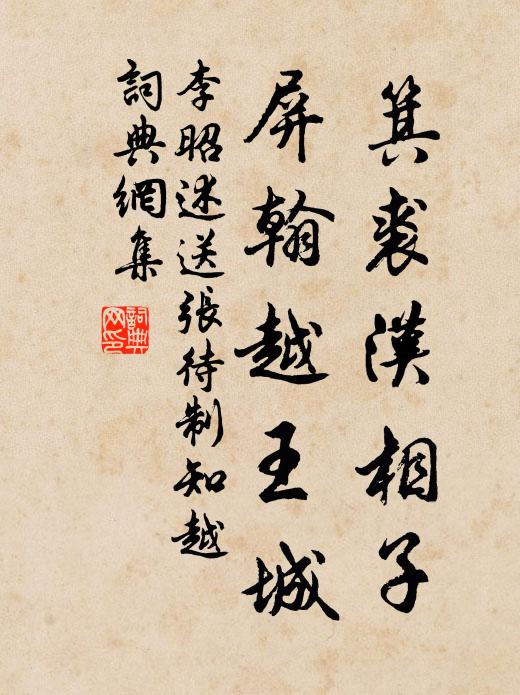 箕裘漢相子
屏翰越王城
李昭述送張待制知越
詞典網集
詞典
网印